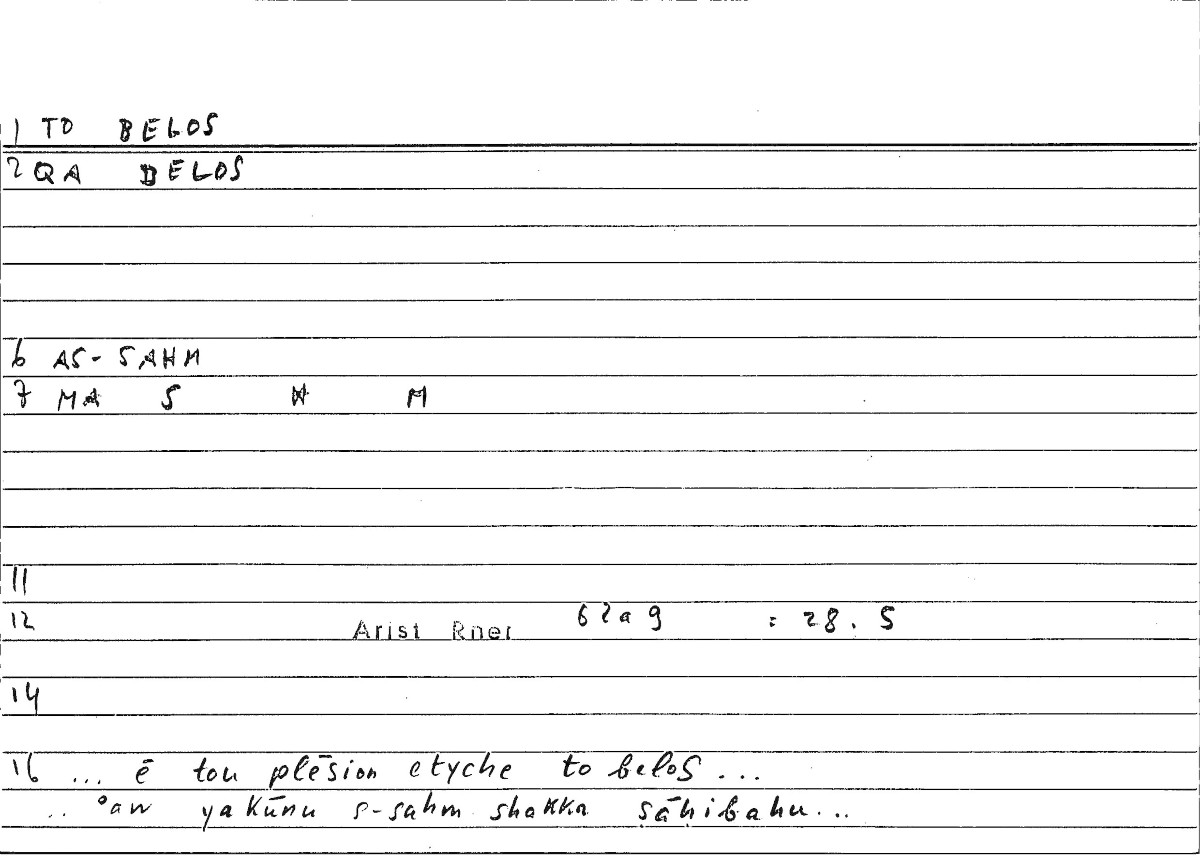 1 TO BELOS
2 QA BELOS
6 AS-SAHM
7 MA S H M
11
12 Arist Rhet 62a9 : 28.5
14
16 ... ē tou plēsion etyche to belos...
.. ʾaw yakūnu s-sahm shakka ṣāḥibahu...